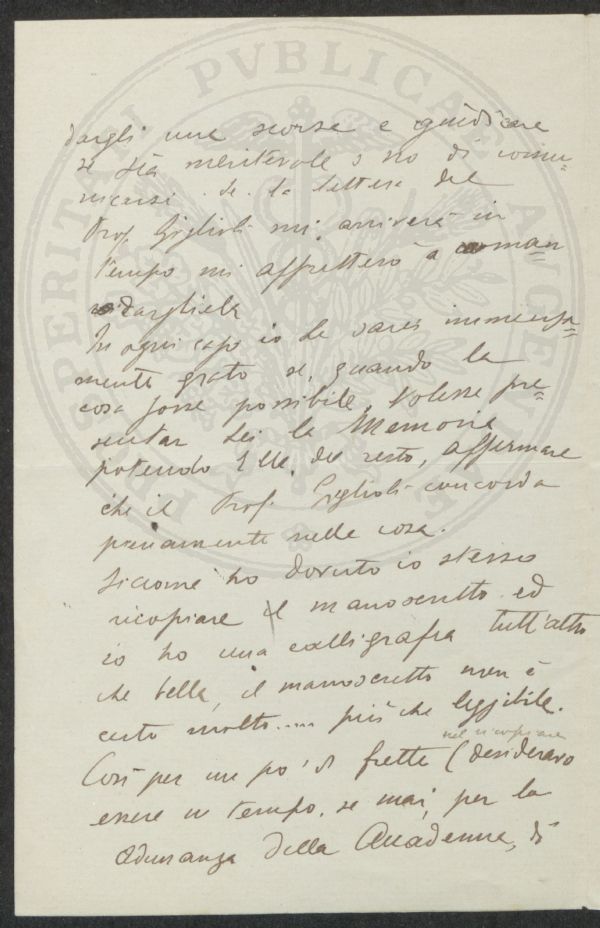 dargli una scorsa e giudicare
se sia meritevole o no di comu=
nicarsi. Se la lettera del
Prof. Giglioli mi arriverà in
tempo mi affretterò a man=
dargliela
In ogni caso io Le sarei immensa=
mente grato se, quando la
cosa fosse possibile, volesse pre=
sentar Lei la Memoria
potendo Ella, del resto, affermare
che il Prof. Giglioli concorda
pienamente nella cosa.
Siccome ho dovuto io stesso
ricopiare il manoscritto ed
io ho una calligrafia tutt'altro
che bella, il manoscritto non è
certo molto.... più che leggibile.
nel ricopiare
Così per un po' di fretta (desideravo
essere in tempo, se mai, per la
adunanza della Accademia, di
PROSPERITATI PVBLICAE AVGENDAE